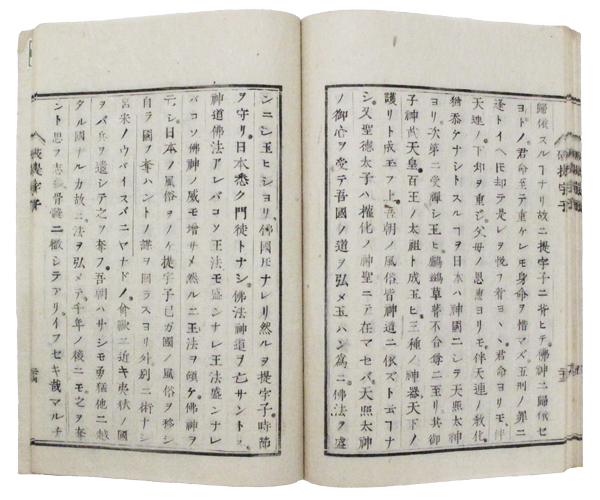 歸依スルヿナリ故ニ提宇子ニ背ヒテ佛神ニ歸依セ
ヨトノ君命至テ重ケレモ身命ヲ惜マズ五刑ノ罪ニ
逢トイヘ𪜈却テ是レヲ悅フ者ヨ丶君命ヨリモ伴
天連ノ下知ヲ重ジ父母ノ恩惠ヨリモ伴天連ノ敎化
猶忝ケナシトスルヿヲ日本ハ神國ニシテ天照太神
ヨリ次第ニ受禪シ玉ヒ鸕鷀草葺不合尊ニ至リ其御
子神武天皇百王ノ太祖ト成玉ヒ三種ノ神器天下ノ
護リト成玉フ上吾朝ノ風俗皆神道ニ依ズト云ヿナ
シ又聖德太子ハ權化ノ神聖ニテ在マセバ天照太神
ノ御心ヲ堂テ吾國ノ道ヲ弘メ玉ハン爲ニ佛法ヲ盛
破提宇子
シニシ玉ヒショリ佛國𪜈ナレリ然ルヲ提宇子時節
ヲ守リ日本悉ク門徒トナシ佛法神道ヲ亡サントス
神道佛法アレバコソ王法モ盛ンナレ王法盛ンナレ
バコソ佛神ノ威モ增サメ然ルニ王法ヲ傾ケ佛神ヲ
亡シ日本ノ風俗ヲノケ提宇子己ガ國ノ風俗ヲ移シ
自ラ國ヲ奪ハントノ謀ヲ回ラスヨリ外別ニ術ナシ
呂宋ノウバイスパニヤナドノ禽獸ニ近キ夷狄ノ國
ヲバ兵ヲ遣シテ之ヲ奪フ吾朝ハサシモ勇猛他ニ越
タル國ナルカ故ニ法ヲ弘メテ千年ノ後ニモ之ヲ奪
ント思フ志シ骨髓ニ徹シテアリイフセキ哉マルチ
破提宇子